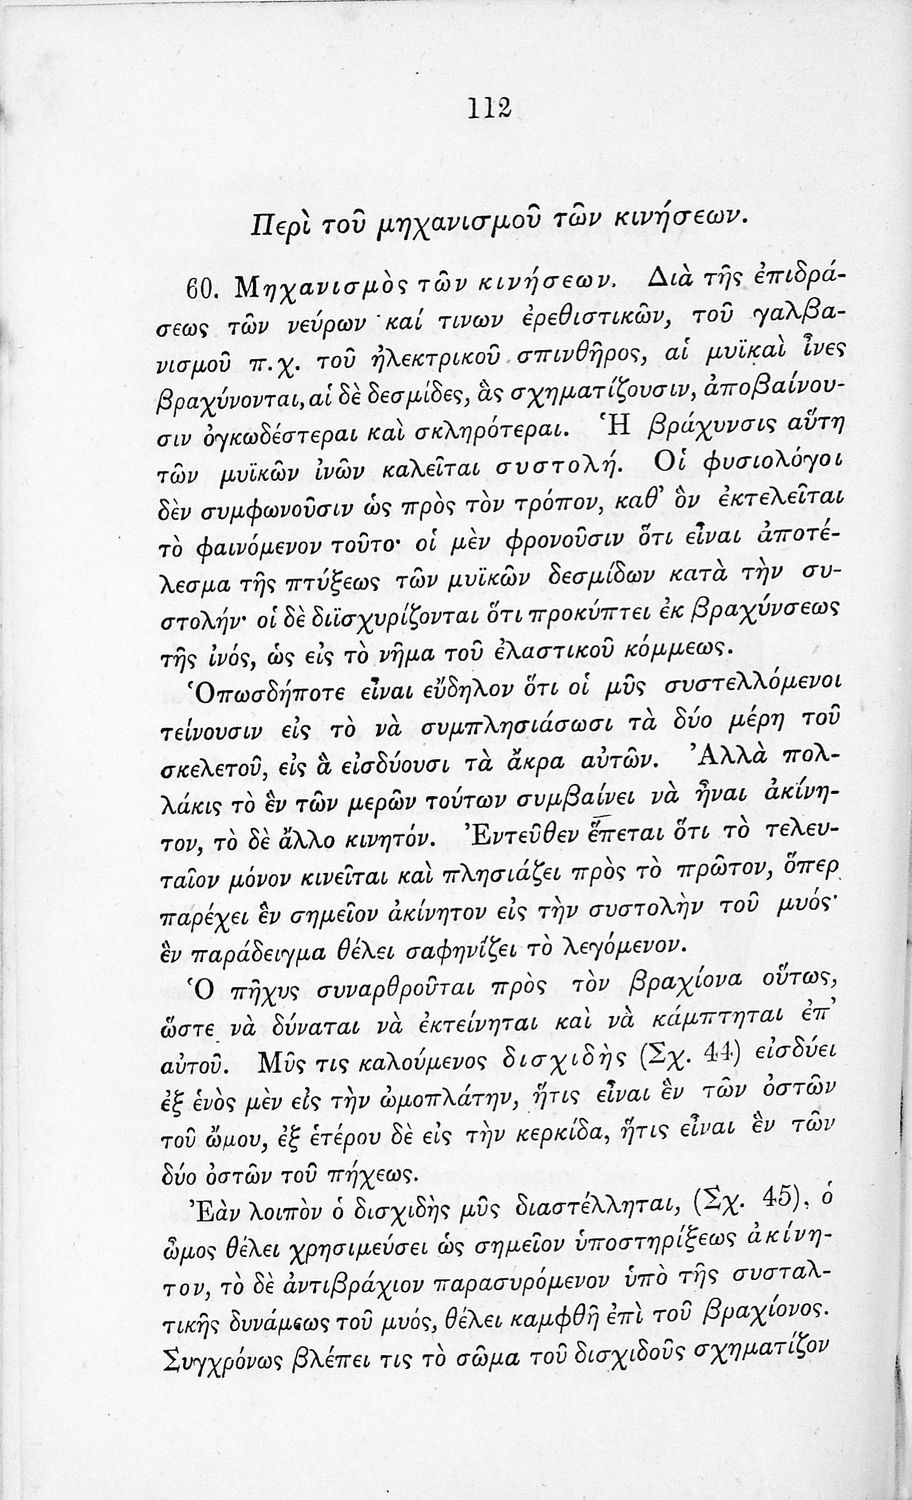 112
Περὶ τοῦ μηχανισμοῦ τῶν κινήσεων.
60. Μηχανισμὸς τῶν κινήσεων. Διὰ τῆς ἐπιδρά-
σεως τῶν νεύρων καί τινων ἐρεθιστικῶν, τοῦ γαλβα-
νισμοῦ π.χ. τοῦ ἠλεκτρικοῦ σπινθῆρος, αἱ μυϊκαὶ ἶνες
βραχύνονται, αἱ δὲ δεσμίδες, ἃς σχηματίζουσιν, ἀποβαίνου-
σιν ὀγκωδέστεραι καὶ σκληρότεραι. Ἡ βράχυνσις αὕτη
τῶν μυϊκῶν ἰνῶν καλεῖται συστολή. Οἱ φυσιολόγοι
δὲν συμφωνοῦσιν ὡς πρὸς τὸν τρόπον, καθ’ ὃν ἐκτελεῖται
τὸ φαινόμενον τοῦτο· οἱ μὲν φρονοῦσιν ὅτι εἶναι ἀποτέ-
λεσμα τῆς πτύξεως τῶν μυϊκῶν δεσμίδων κατὰ τὴν συ-
στολήν· οἱ δὲ διϊσχυρίζονται ὅτι προκύπτει ἐκ βραχύνσεως
τῆς ἰνός, ὡς εἰς τὸ νῆμα τοῦ ἐλαστικοῦ κόμμεως.
Ὁπωσδήποτε εἶναι εὔδηλον ὅτι οἱ μῦς συστελλόμενοι
τείνουσιν εἰς τὸ νὰ συμπλησιάσωσι τὰ δύο μέρη τοῦ
σκελετοῦ, εἰς ἃ εἰσδύουσι τὰ ἄκρα αὐτῶν. Ἀλλὰ πολ-
λάκις τὸ ἓν τῶν μερῶν τούτων συμβαίνει νὰ ἦναι ἀκίνη-
τον, τὸ δὲ ἄλλο κινητόν. Ἐντεῦθεν ἕπεται ὅτι τὸ τελευ-
ταῖον μόνον κινεῖται καὶ πλησιάζει πρὸς τὸ πρῶτον, ὅπερ
παρέχει ἓν σημεῖον ἀκίνητον εἰς τὴν συστολὴν τοῦ μυός·
ἓν παράδειγμα θέλει σαφηνίζει τὸ λεγόμενον.
Ὁ πῆχυς συναρθροῦται πρὸς τὸν βραχίονα οὕτως,
ὥστε νὰ δύναται νὰ ἐκτείνηται καὶ νὰ κάμπτηται ἐπ’
αὐτοῦ. Μῦς τις καλούμενος δισχιδὴς (Σχ. 44) εἰσδύει
ἐξ ἑνὸς μὲν εἰς τὴν ὠμοπλάτην, ἥτις εἶναι ἓν τῶν ὀστῶν
τοῦ ὤμου, ἐξ ἑτέρου δὲ εἰς τὴν κερκίδα, ἥτις εἶναι ἓν τῶν
δύο ὀστῶν τοῦ πήχεως.
Ἐὰν λοιπὸν ὁ δισχιδὴς μῦς διαστέλληται, (Σχ. 45), ὁ
ὦμος θέλει χρησιμεύσει ὡς σημεῖον ὑποστηρίξεως ἀκίνη-
τον, τὸ δὲ ἀντιβράχιον παρασυρόμενον ὑπὸ τῆς συσταλ-
τικῆς δυνάμεως τοῦ μυός, θέλει καμφθῆ ἐπὶ τοῦ βραχίονος.
Συγχρόνως βλέπει τις τὸ σῶμα τοῦ δισχιδοῦς σχηματίζον